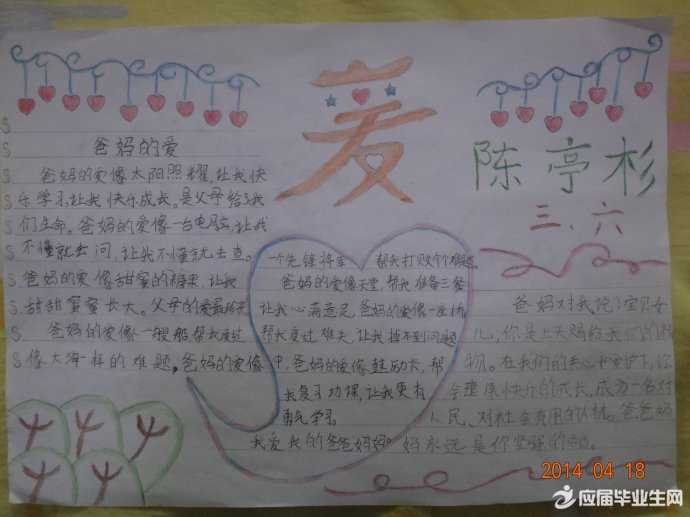 爱
陈亭杉
三、六
爸妈的爱
爸妈的爱像太阳照耀,让我快
乐学习,让我快乐成长。是父母给了我
们生命。爸妈的爱像一台电脑,让我
不懂就去问,让我不懂就去查。
爸妈的爱像甜蜜的糖果,让我
甜甜蜜蜜长大。父母的爱最
爸妈的爱像一艘船,帮我度过
像大海一样的难题。爸妈的爱像
一个先锋将军 帮我打败个个难题
爸妈的爱像天堂,帮我准备三餐
让我心满意足,爸妈的爱像一座桥,
帮我度过难关,让我挡不到问题
中,爸妈的爱像鼓励长,帮
我复习功课,让我更有
勇气学习。
我爱我的爸爸妈妈。
爸妈对我说:宝贝女
儿,你是上天赐给我们的礼
物。在我们的关心和爱护下,你
会健康快乐的成长,成为一名对
人民、对社会有用的人材。爸爸妈
妈永远是你坚强的
2014 04 18
应届毕业生网